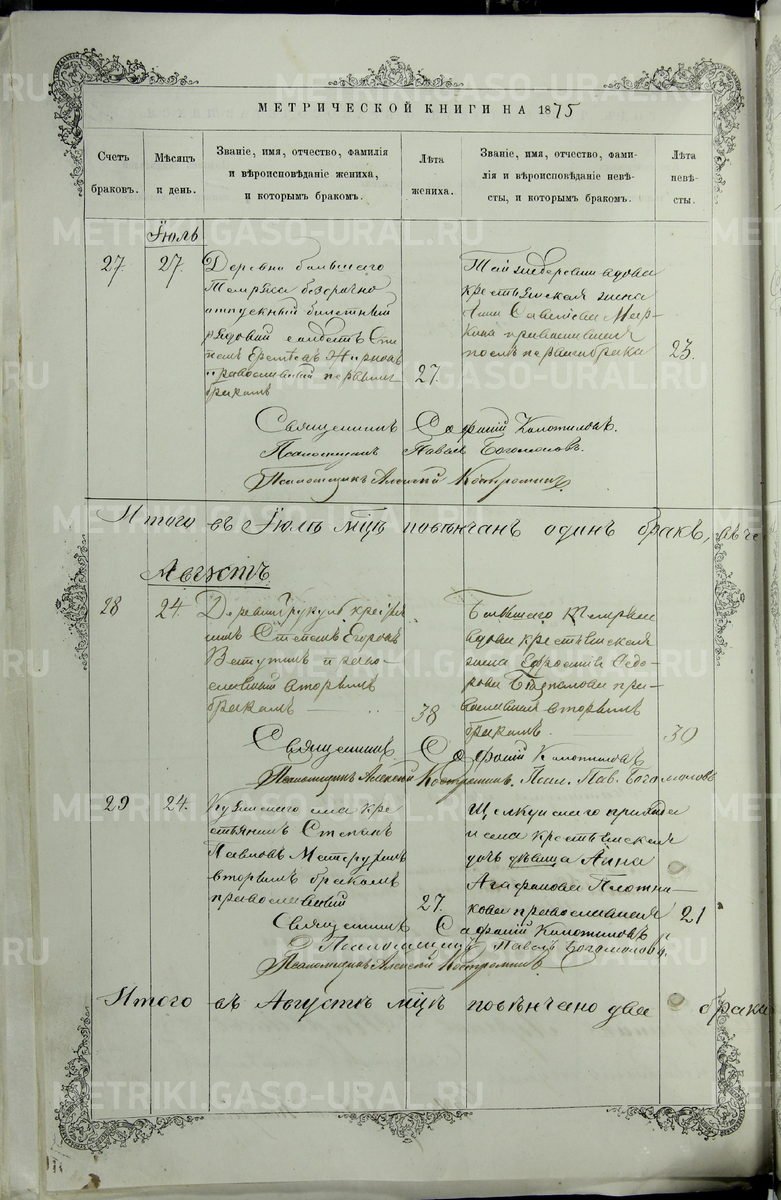 МЕТРИЧЕСКОЙ КНИГИ НА 1875
Счетъ браковъ.
Мѣсяцъ и день.
Званіе, имя, отчество, фамилія
и вѣроисповѣданіе жениха,
и которымъ бракомъ.
Лѣта жениха.
Званіе, имя, отчество, фами-
лія и вѣроисповѣданіе невѣ-
сты, и которымъ бракомъ.
Лѣта невѣ-
сты.
Іюль
27. 27.
Деревни большаго
безсрочно
отпускный билетный
рядовый солдатъ
Жирновъ
православный первымъ
бракомъ
27.
Той же деревни вдова
крестьянская жена
Анна Савельева Мар-
кина православная
послѣ перваго брака
23.
Священникъ Софоній Колотиловъ.
Псаломщикъ Павелъ Богомоловъ.
Псаломщикъ Алексѣй Костроминъ
Итого въ Іюлѣ м͠цѣ повѣнчанъ одинъ бракъ,
Августъ
28 24.
Деревни
Степанъ Егоровъ
Ветугинъ право-
славный вторымъ
бракомъ
38
Большаго
вдова крестьянская
жена Евросинія Сидо-
рова пра-
вославная вторымъ
бракомъ.
30
Священникъ Софоній Колотиловъ
Псаломщикъ Алексѣй Костроминъ. Псал. Пав. Богомоловъ
29 24.
села кре-
стьянинъ Степанъ
Павловъ
вторымъ бракомъ
православный
27.
Щелкунскаго прихода
и села крестьянская
дочь дѣвица Анна
Агафонова Плотни-
кова православная
21
Священникъ Софоній Колотиловъ
Псаломщикъ Павелъ Богомоловъ.
Псаломщикъ Алексѣй Костроминъ
Итого въ Августѣ м͠цѣ повѣнчано два брака
METRIKI.GASO-URAL.RU